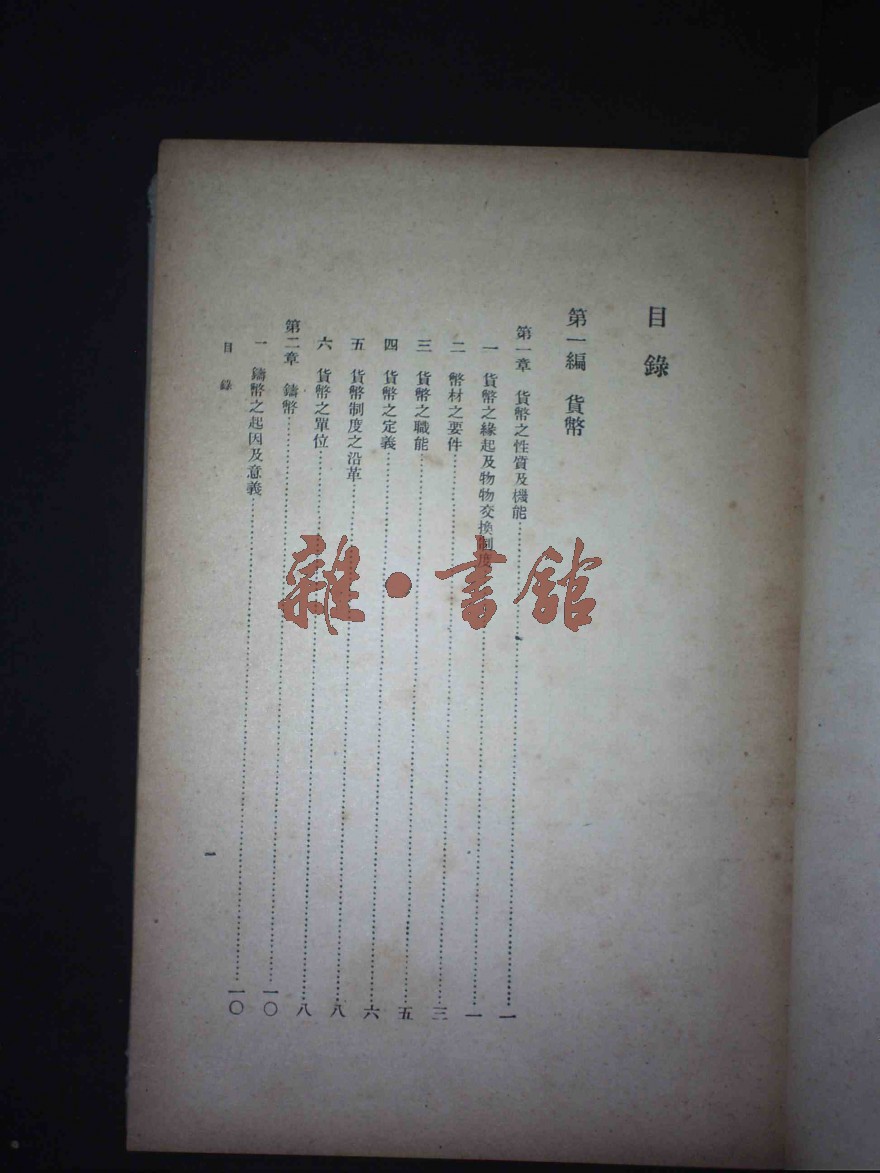 目錄
第一編 貨幣
第一章 貨幣之性質及機能……一
一 貨幣之緣起及物物交換制度……一
二 幣材之要件……三
三 貨幣之職能……五
四 貨幣之定義……六
五 貨幣制度之沿革……八
六 貨幣之單位……八
第二章 鑄幣……一〇
一 鑄幣之起因及意義……一〇
目錄
一
雜·書館